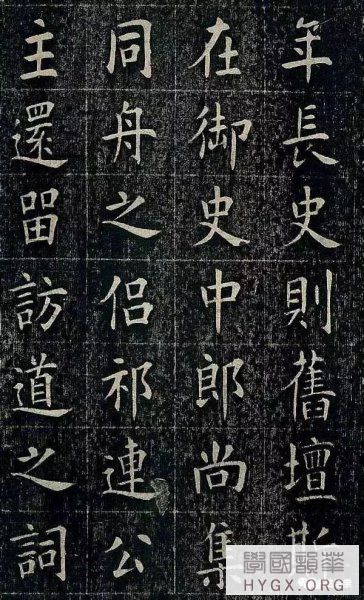 年長史則舊壇斯
在御史中郎尚集
同舟之侶祁連公
主還留訪道之詞
華韻國學
HYGX.ORG